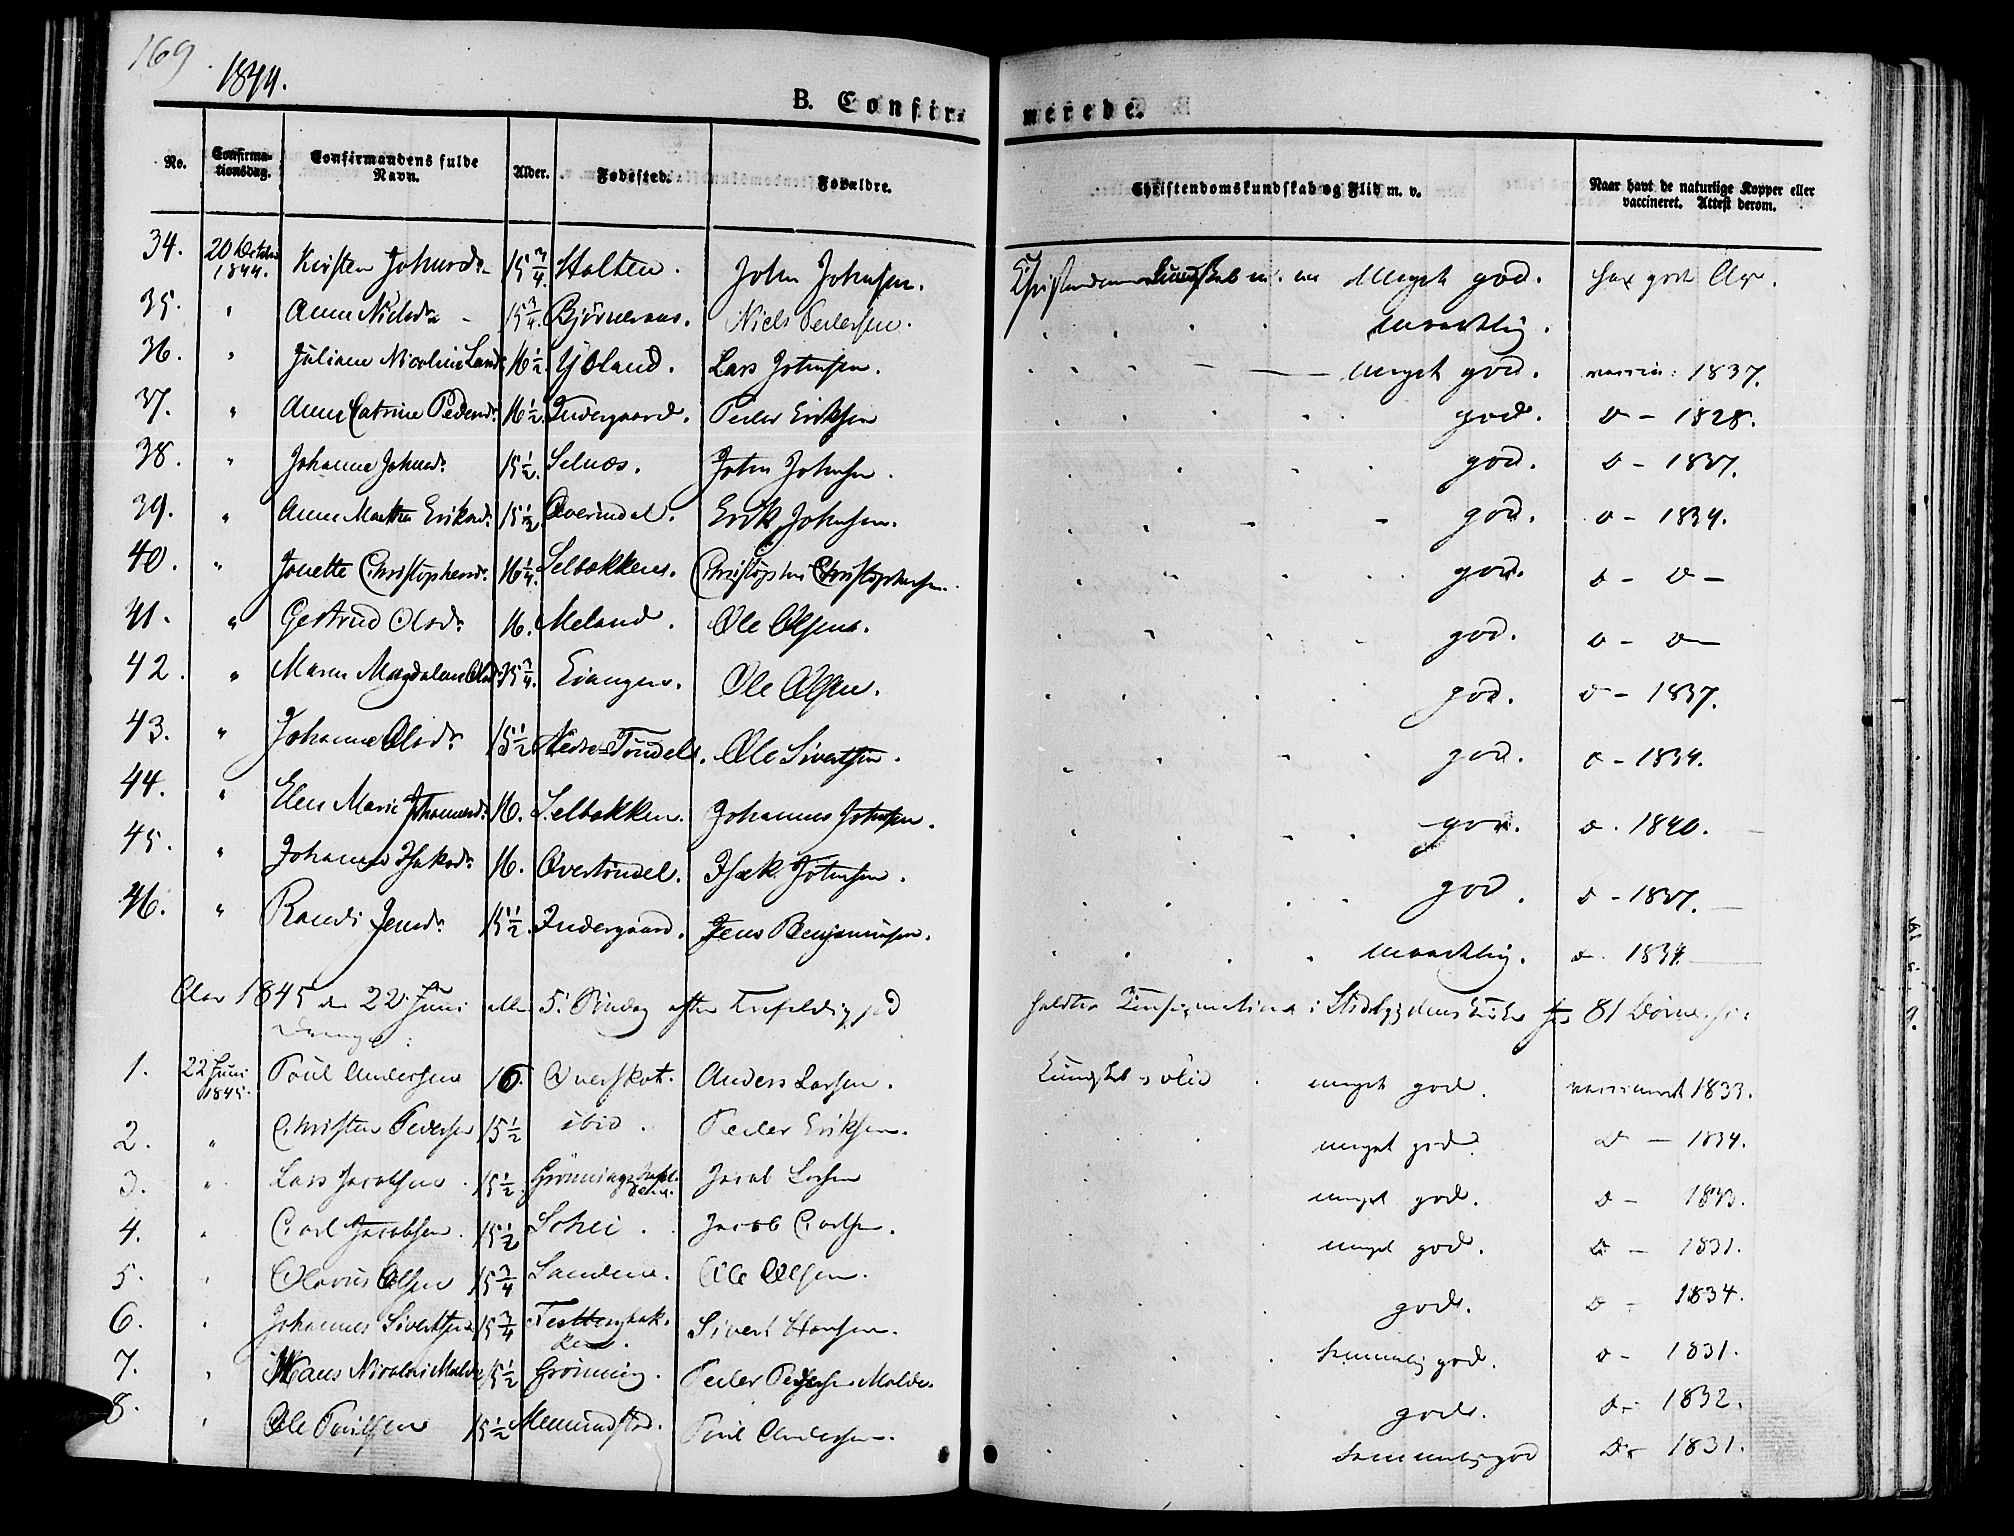 169.
1844.
B. Confirmerede.
No. Confirmationsdag. Confirmandens fulde Navn. Alder. Fødested. Forældre. Christendomskundskab og Flid m. v. Naar havt de naturlige Kopper eller vaccineret. Attest derom.
34. 20 October 1844. Kirsten Johnsdr 15 3/4 Holten. John Johnsen. Christendomskundskab m. m. Meget god.
35. " Anne Nielsdr 15 3/4. Niels Pedersen. maadelig.
36. " Juliane Nicoline Larsdr 16 1/2. Lars Johnsen. meget god. 1837.
37. " Anne Catrine Pedersdr 16 1/2. Indergaard. Peder Eriksen god. D - 1828.
38. " Johanne Johnsdr 15 1/2. Selnæs. John Johnsen. god. D - 1837.
39. " Anne Martha Eriksdr 15 1/2. Erik Johnsen. god. D - 1834.
40. " Jonette Christophersdr. 16 1/4. Selbækken. Christopher Christophersen. god. D - D -
41. " Gertrud Olsdr 16. Meland. Ole Olsen. god. D - D -
42. " Maren Magdalena Olsdr 15 3/4. Evangen. Ole Olsen. god. D - 1837.
43. " Johanna Olsdr 15 1/2 Nedre Tøndel. Ole Sivertsen. god. D - 1834.
44. " Elen Marie Johannesdr 16. Selbækken. Johannes Johnsen. god. D. 1840.
45. " Johanna Isaksdr 16. Overtøndel. Isak Johnsen. god. D - 1837.
46. " Randi Jensdr 15 1/2. Indergaard. Jens Benjaminsen. maadelig. D. 1834.
Aar 1845 den 22 Juni 5. Søndag efter Trefoldighed holdtes Confirmation i Stadsbygdens Kirke for 81 Børn
Drenge:
1. 22 Juni 1845. Poul Andersen 16. Overskot. Anders Larsen. Kundskab o Flid meget god. vaccineret 1833.
2. " Christen Pedersen 15 1/2 ibid. Peder Eriksen. meget god. D - 1834.
3. " Lars Jacobsen. 15 1/2. Jacob Larsen meget god. D - 1833.
4. " Carl Jacobsen. 15 1/2 Schei. Jacob Carlsen. meget god. D - 1831.
5. " Olavus Olsen 15 3/4 Sandene. Ole Olsen. god. D - 1834.
6. " Johannes Sivertsen 15 3/4 Sivert Hansen. temmelig god. D - 1831.
7. " Hans Nicolai Molde 15 1/2 Grønning. Peder Pedersen Molde. god. D - 1832.
8. " Ole Poulsen 15 1/2 Poul Andersen. temmelig god D - 1831.